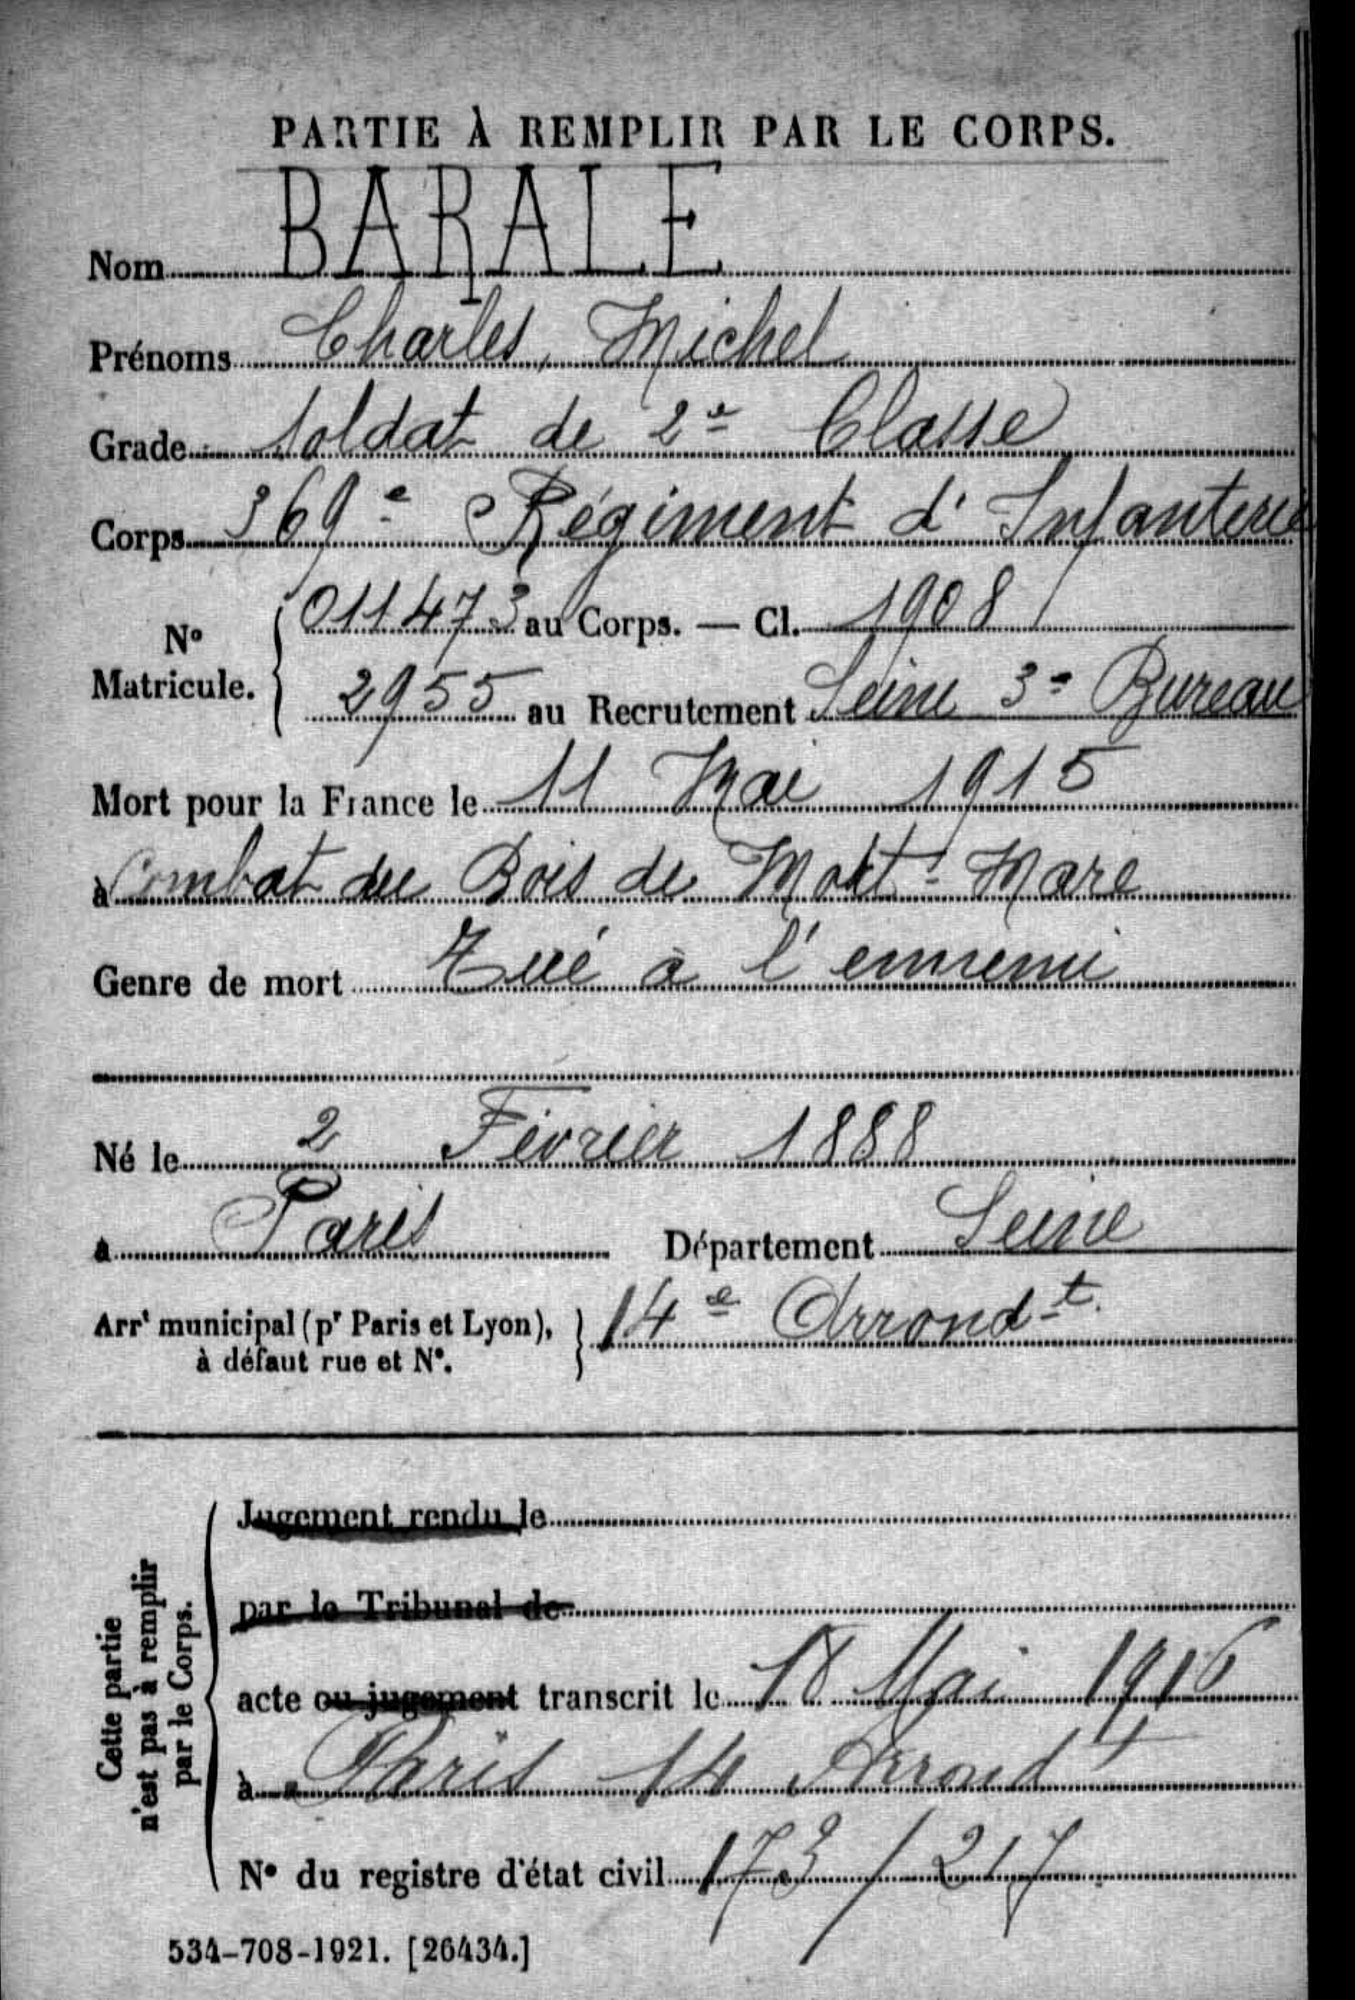 PARTIE À REMPLIR PAR LE CORPS.
Nom BARALE
Prénoms Charles, Michel
Grade Soldat de 2e Classe
Corps 369e Régiment d'Infanterie
N° Matricule. 011473 au Corps. — Cl. 1908
2955 au Recrutement Seine 3e Bureau
Mort pour la France le 11 Mai 1915
à Combat du Bois de Mort-Mare
Genre de mort Tué à l'ennemi
Né le 2 Février 1888
à Paris Département Seine
Arrt municipal (pr Paris et Lyon), à défaut rue et N°. 14e Arrondt.
Cette partie n'est pas à remplir par le Corps.
Jugement rendu le
par le Tribunal de
acte ou jugement transcrit le 18 Mai 1916
à Paris 14 Arrondt
N° du registre d'état civil 173/217
534-708-1921. [26434.]